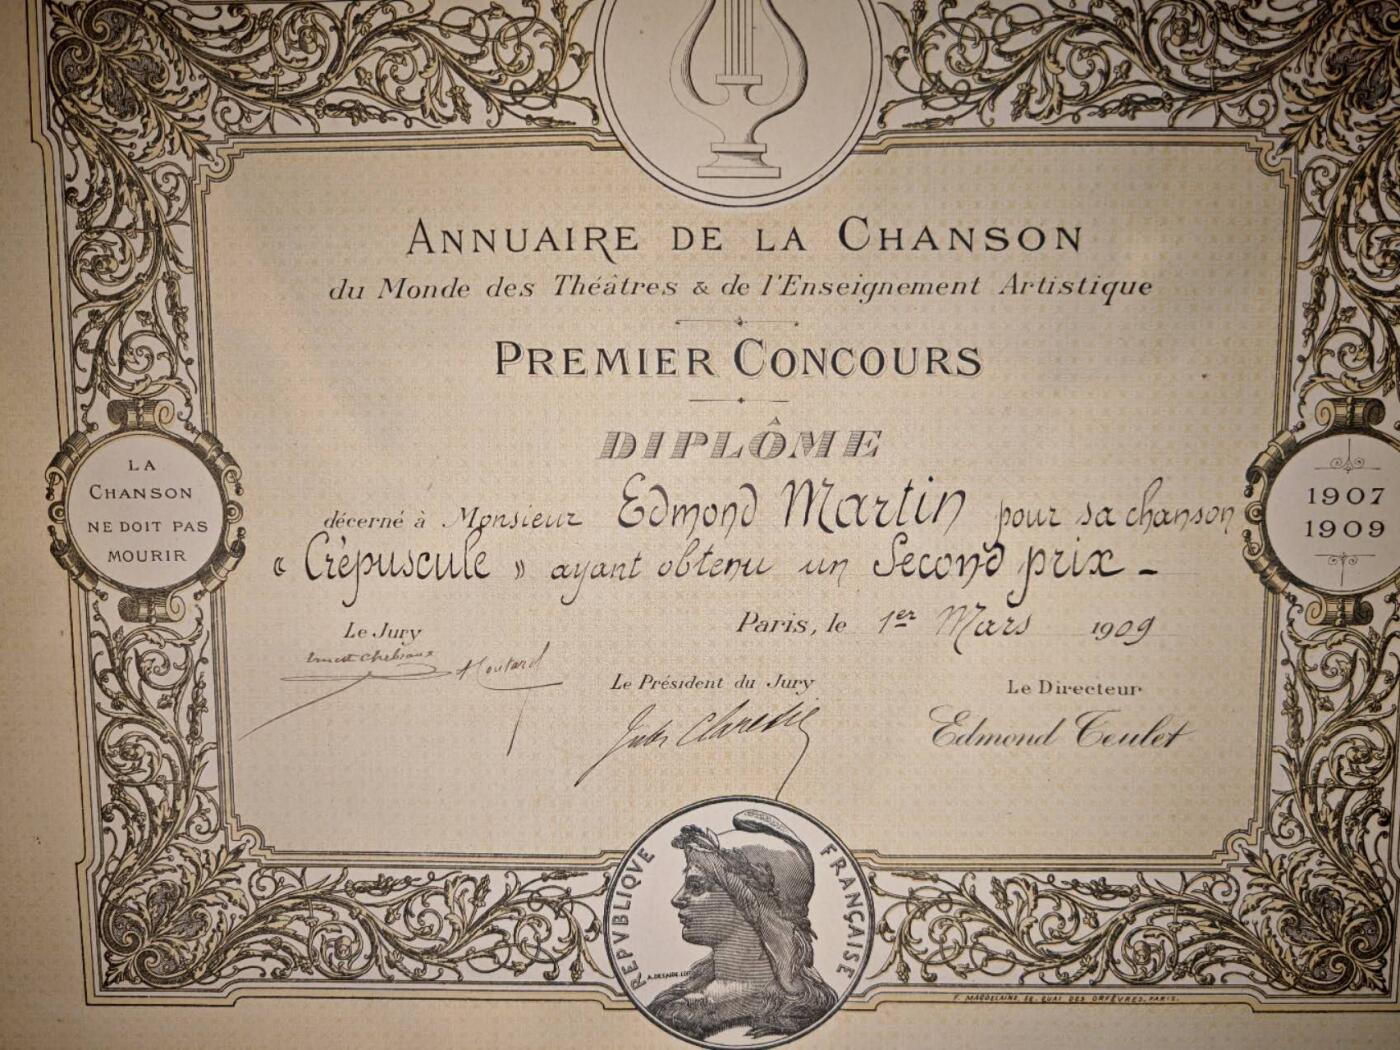 ANNUAIRE DE LA CHANSON
du Monde des Théâtres & de l'Enseignement Artistique
PREMIER CONCOURS
DIPLÔME
LA
CHANSON
NE DOIT PAS
MOURIR
1907
1909
décerné à Monsieur Edmond Martin pour sa chanson
« Crépuscule » ayant obtenu un Second prix -
Paris, le 1er Mars 1909
Le Jury
Ernest Chebroux
Le Président du Jury
Jules Claretie
Le Directeur
Edmond Teulet
REPVBLIQVE FRANÇAISE
F. MAGDELAINE, 58, QUAI DES ORFÈVRES, PARIS.